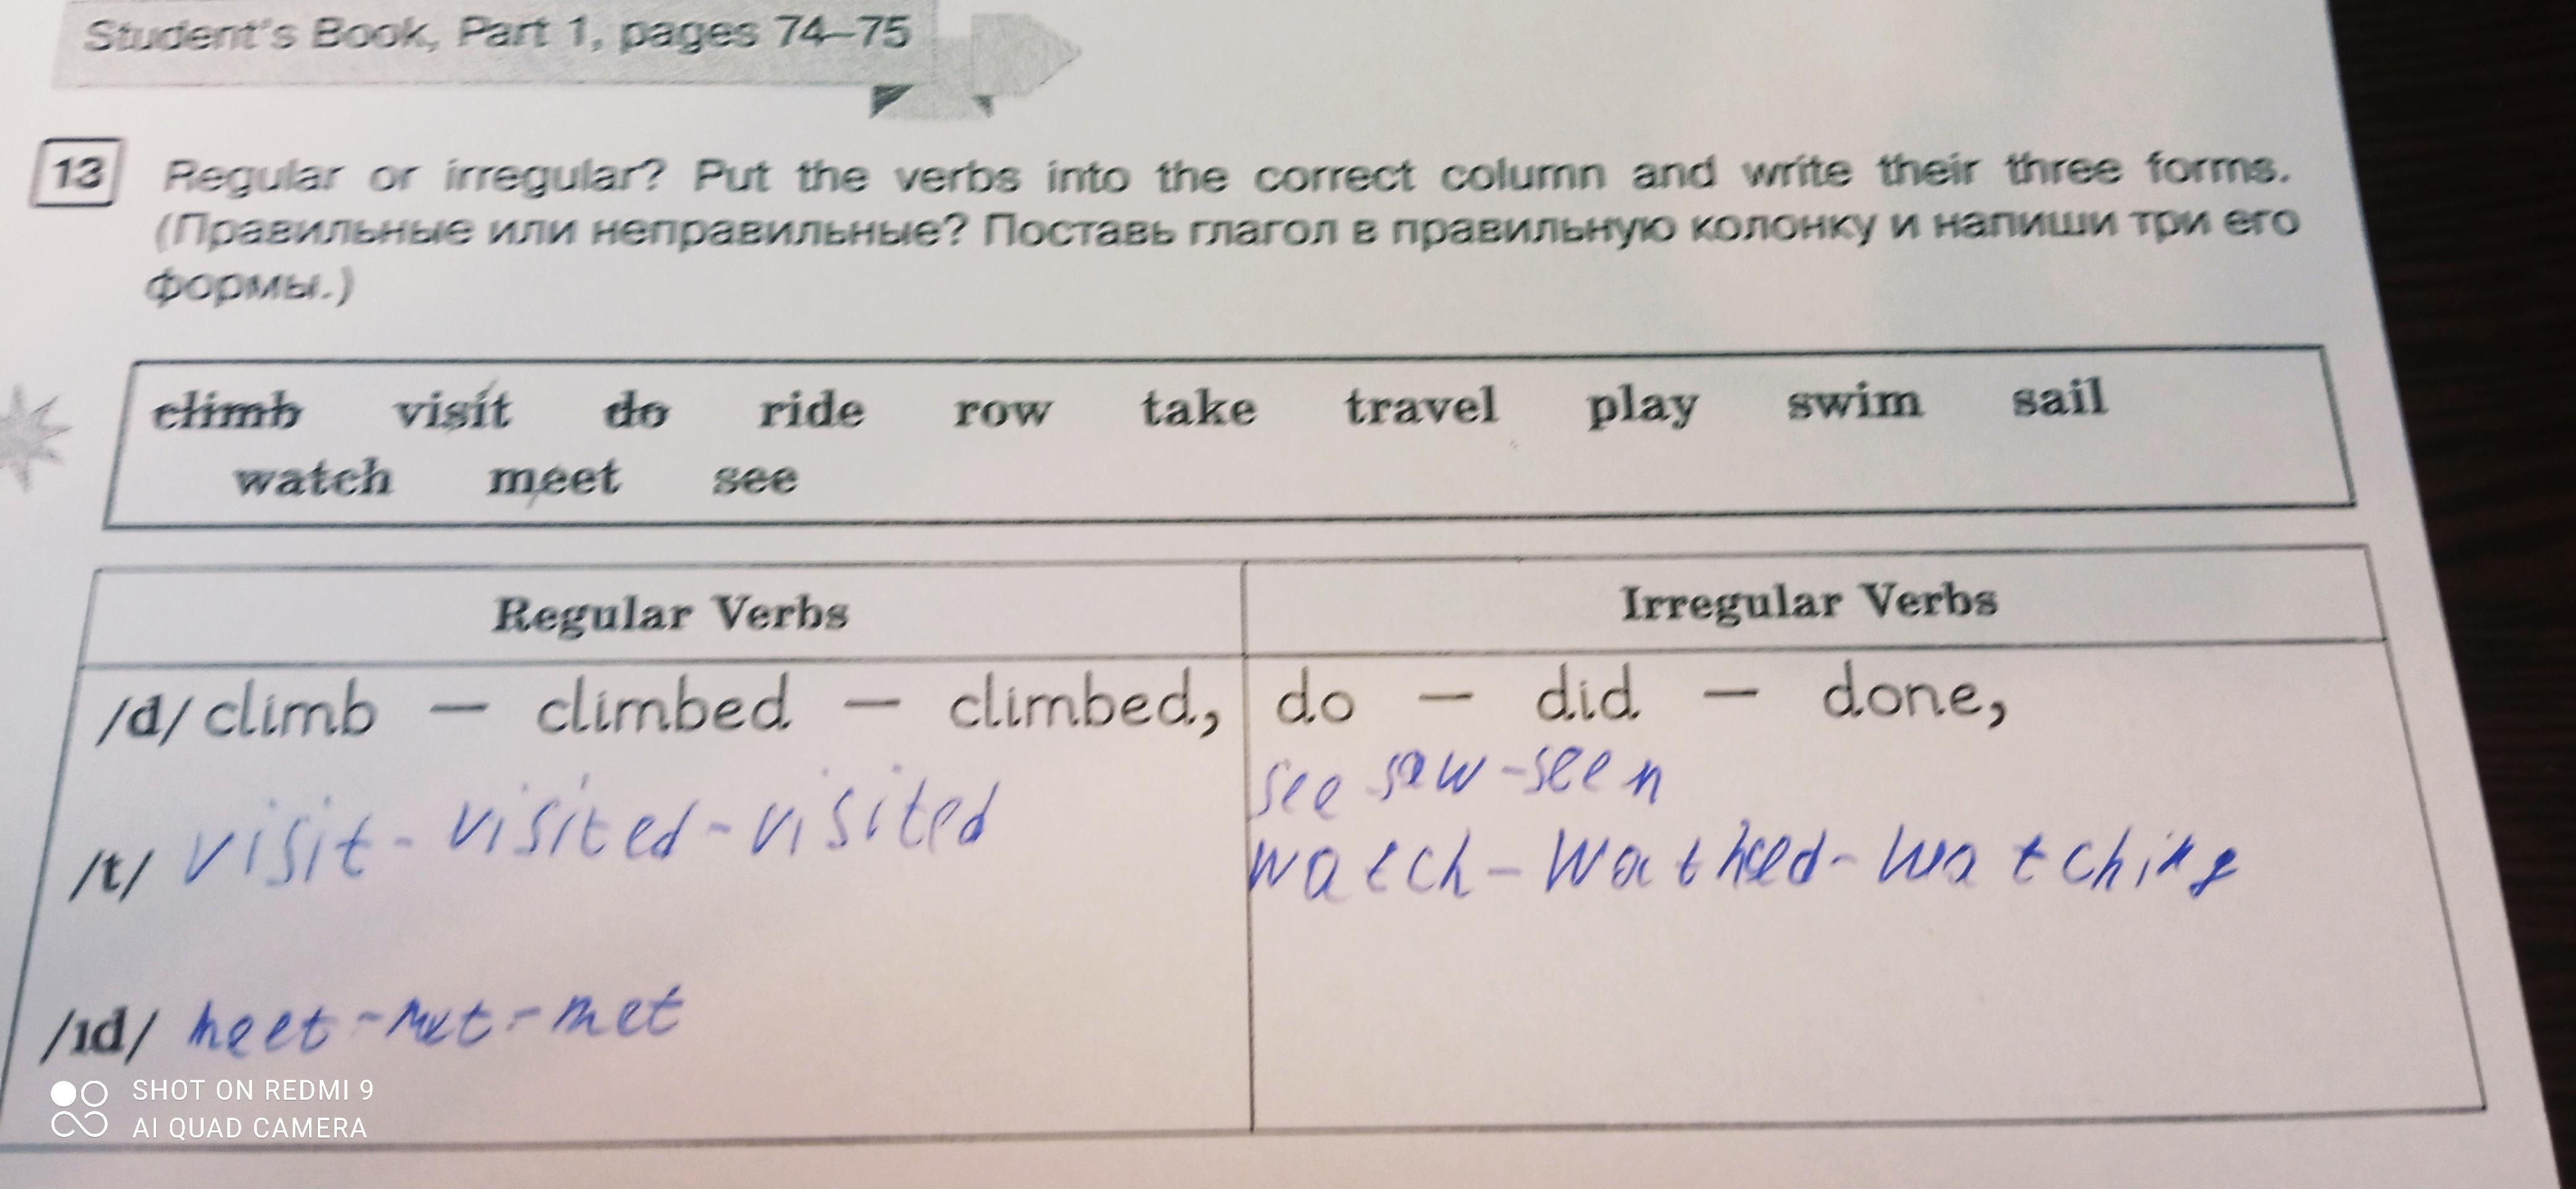 Student's Book, Part 1, pages 74–75
13 Regular or irregular? Put the verbs into the correct column and write their three forms.
(Правильные или неправильные? Поставь глагол в правильную колонку и напиши три его
формы.)
climb visit do ride row take travel play swim sail
watch meet see
Regular Verbs Irregular Verbs
/d/ climb – climbed – climbed, do – did – done,
see saw-seen
/t/ visit-visited-visited watch-wathced-watching
/ɪd/ meet-met-met
SHOT ON REDMI 9
AI QUAD CAMERA